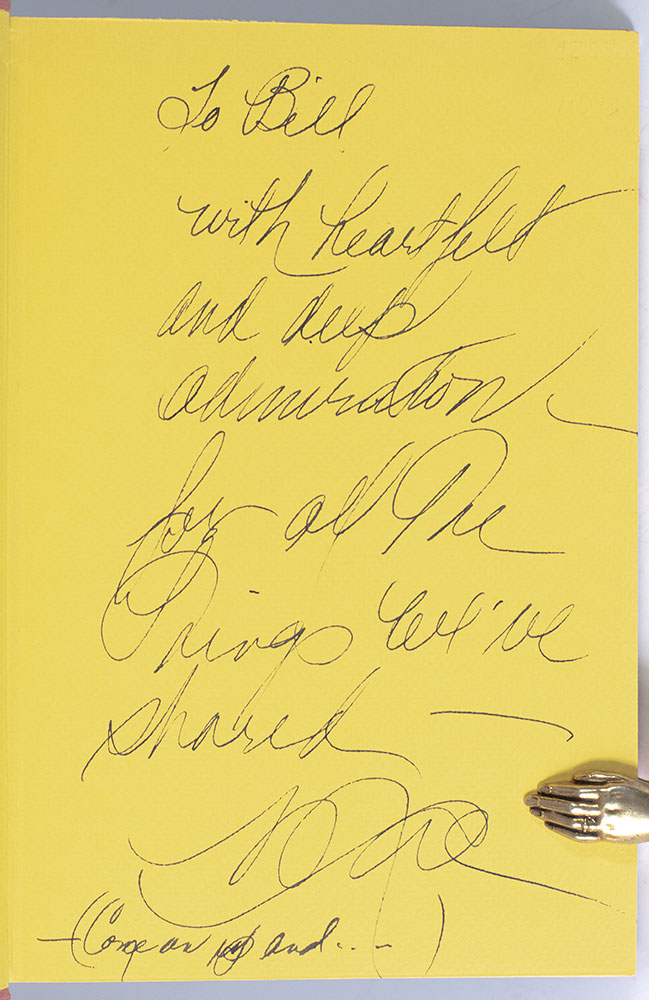 To Bill
with heartfelt
and deep
admiration —
for all The
Things We've
shared —
—(Come on up and....—)